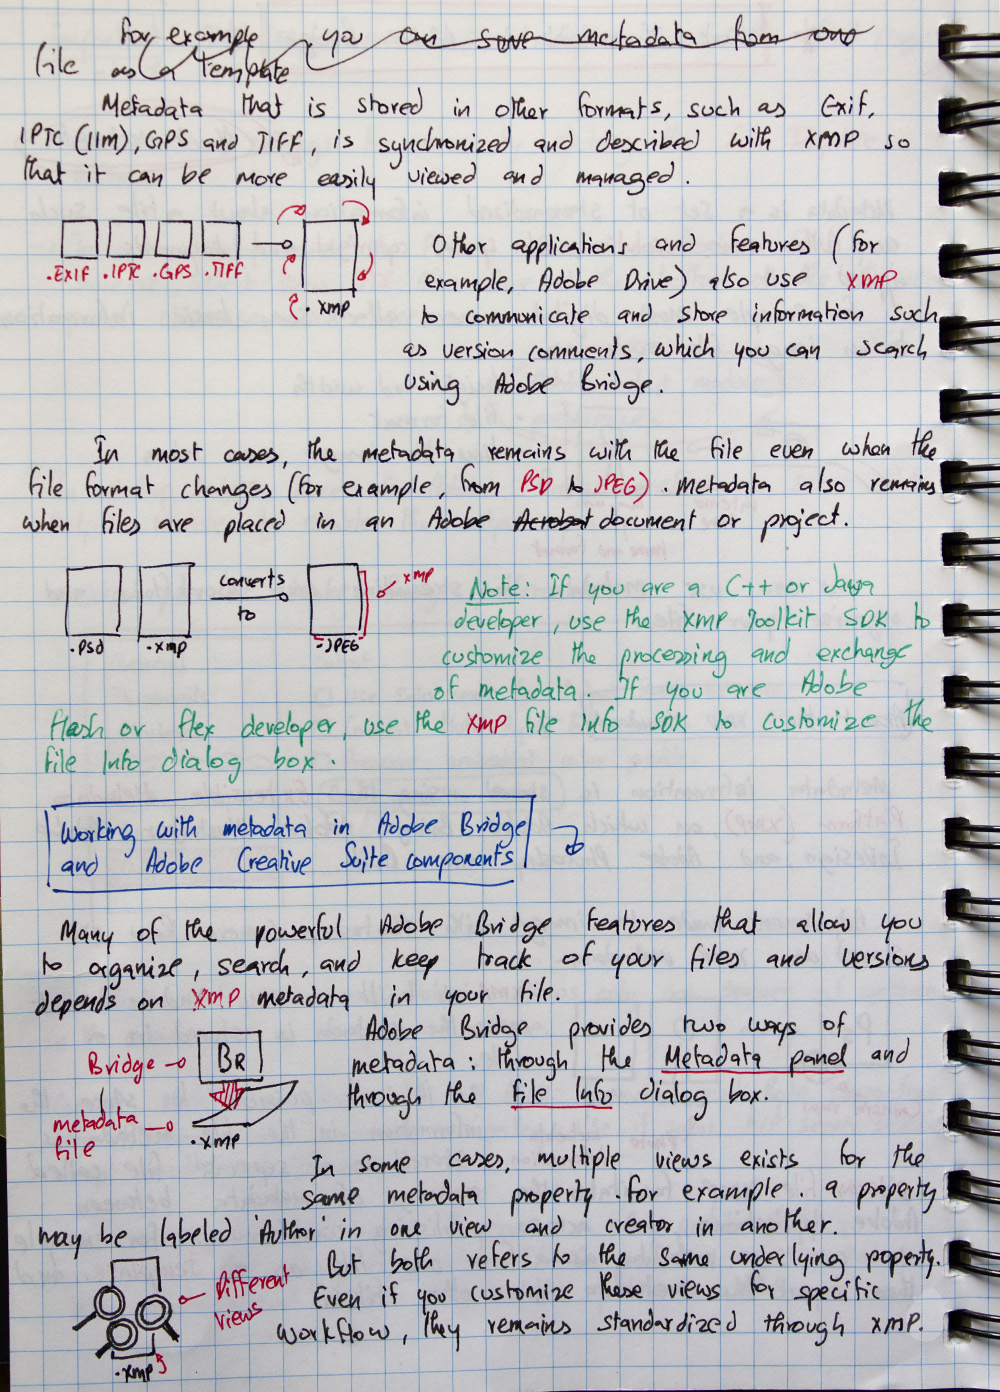 For example you can save metadata from one
file as a template
Metadata that is stored in other formats, such as Exif,
IPTC (IIM), GPS and TIFF, is synchronized and described with XMP so
that it can be more easily viewed and managed.
.EXIF .IPTC .GPS .TIFF
.XMP
Other applications and features (for
example, Adobe Drive) also use XMP
to communicate and store information such
as version comments, which you can search
using Adobe Bridge.
In most cases, the metadata remains with the file even when the
file format changes (for example, from PSD to JPEG). Metadata also remains
when files are placed in an Adobe Acrobat document or project.
.PSD .XMP
converts
to
.JPEG
XMP
Note: If you are a C++ or Java
developer, use the XMP Toolkit SDK to
customize the processing and exchange
of metadata. If you are Adobe
Flash or Flex developer, use the XMP File Info SDK to customize the
File Info dialog box.
Working with metadata in Adobe Bridge
and Adobe Creative Suite components
Many of the powerful Adobe Bridge features that allow you
to organize, search, and keep track of your files and versions
depends on XMP metadata in your file.
Bridge
BR
metadata
file
.XMP
Adobe Bridge provides two ways of
metadata: through the Metadata panel and
through the File Info dialog box.
In some cases, multiple views exists for the
same metadata property. For example. a property
may be labeled 'Author' in one view and creator in another.
But both refers to the same underlying poperty.
Even if you customize these views for specific
workflow, they remains standardized through XMP.
Different
views
.XMP